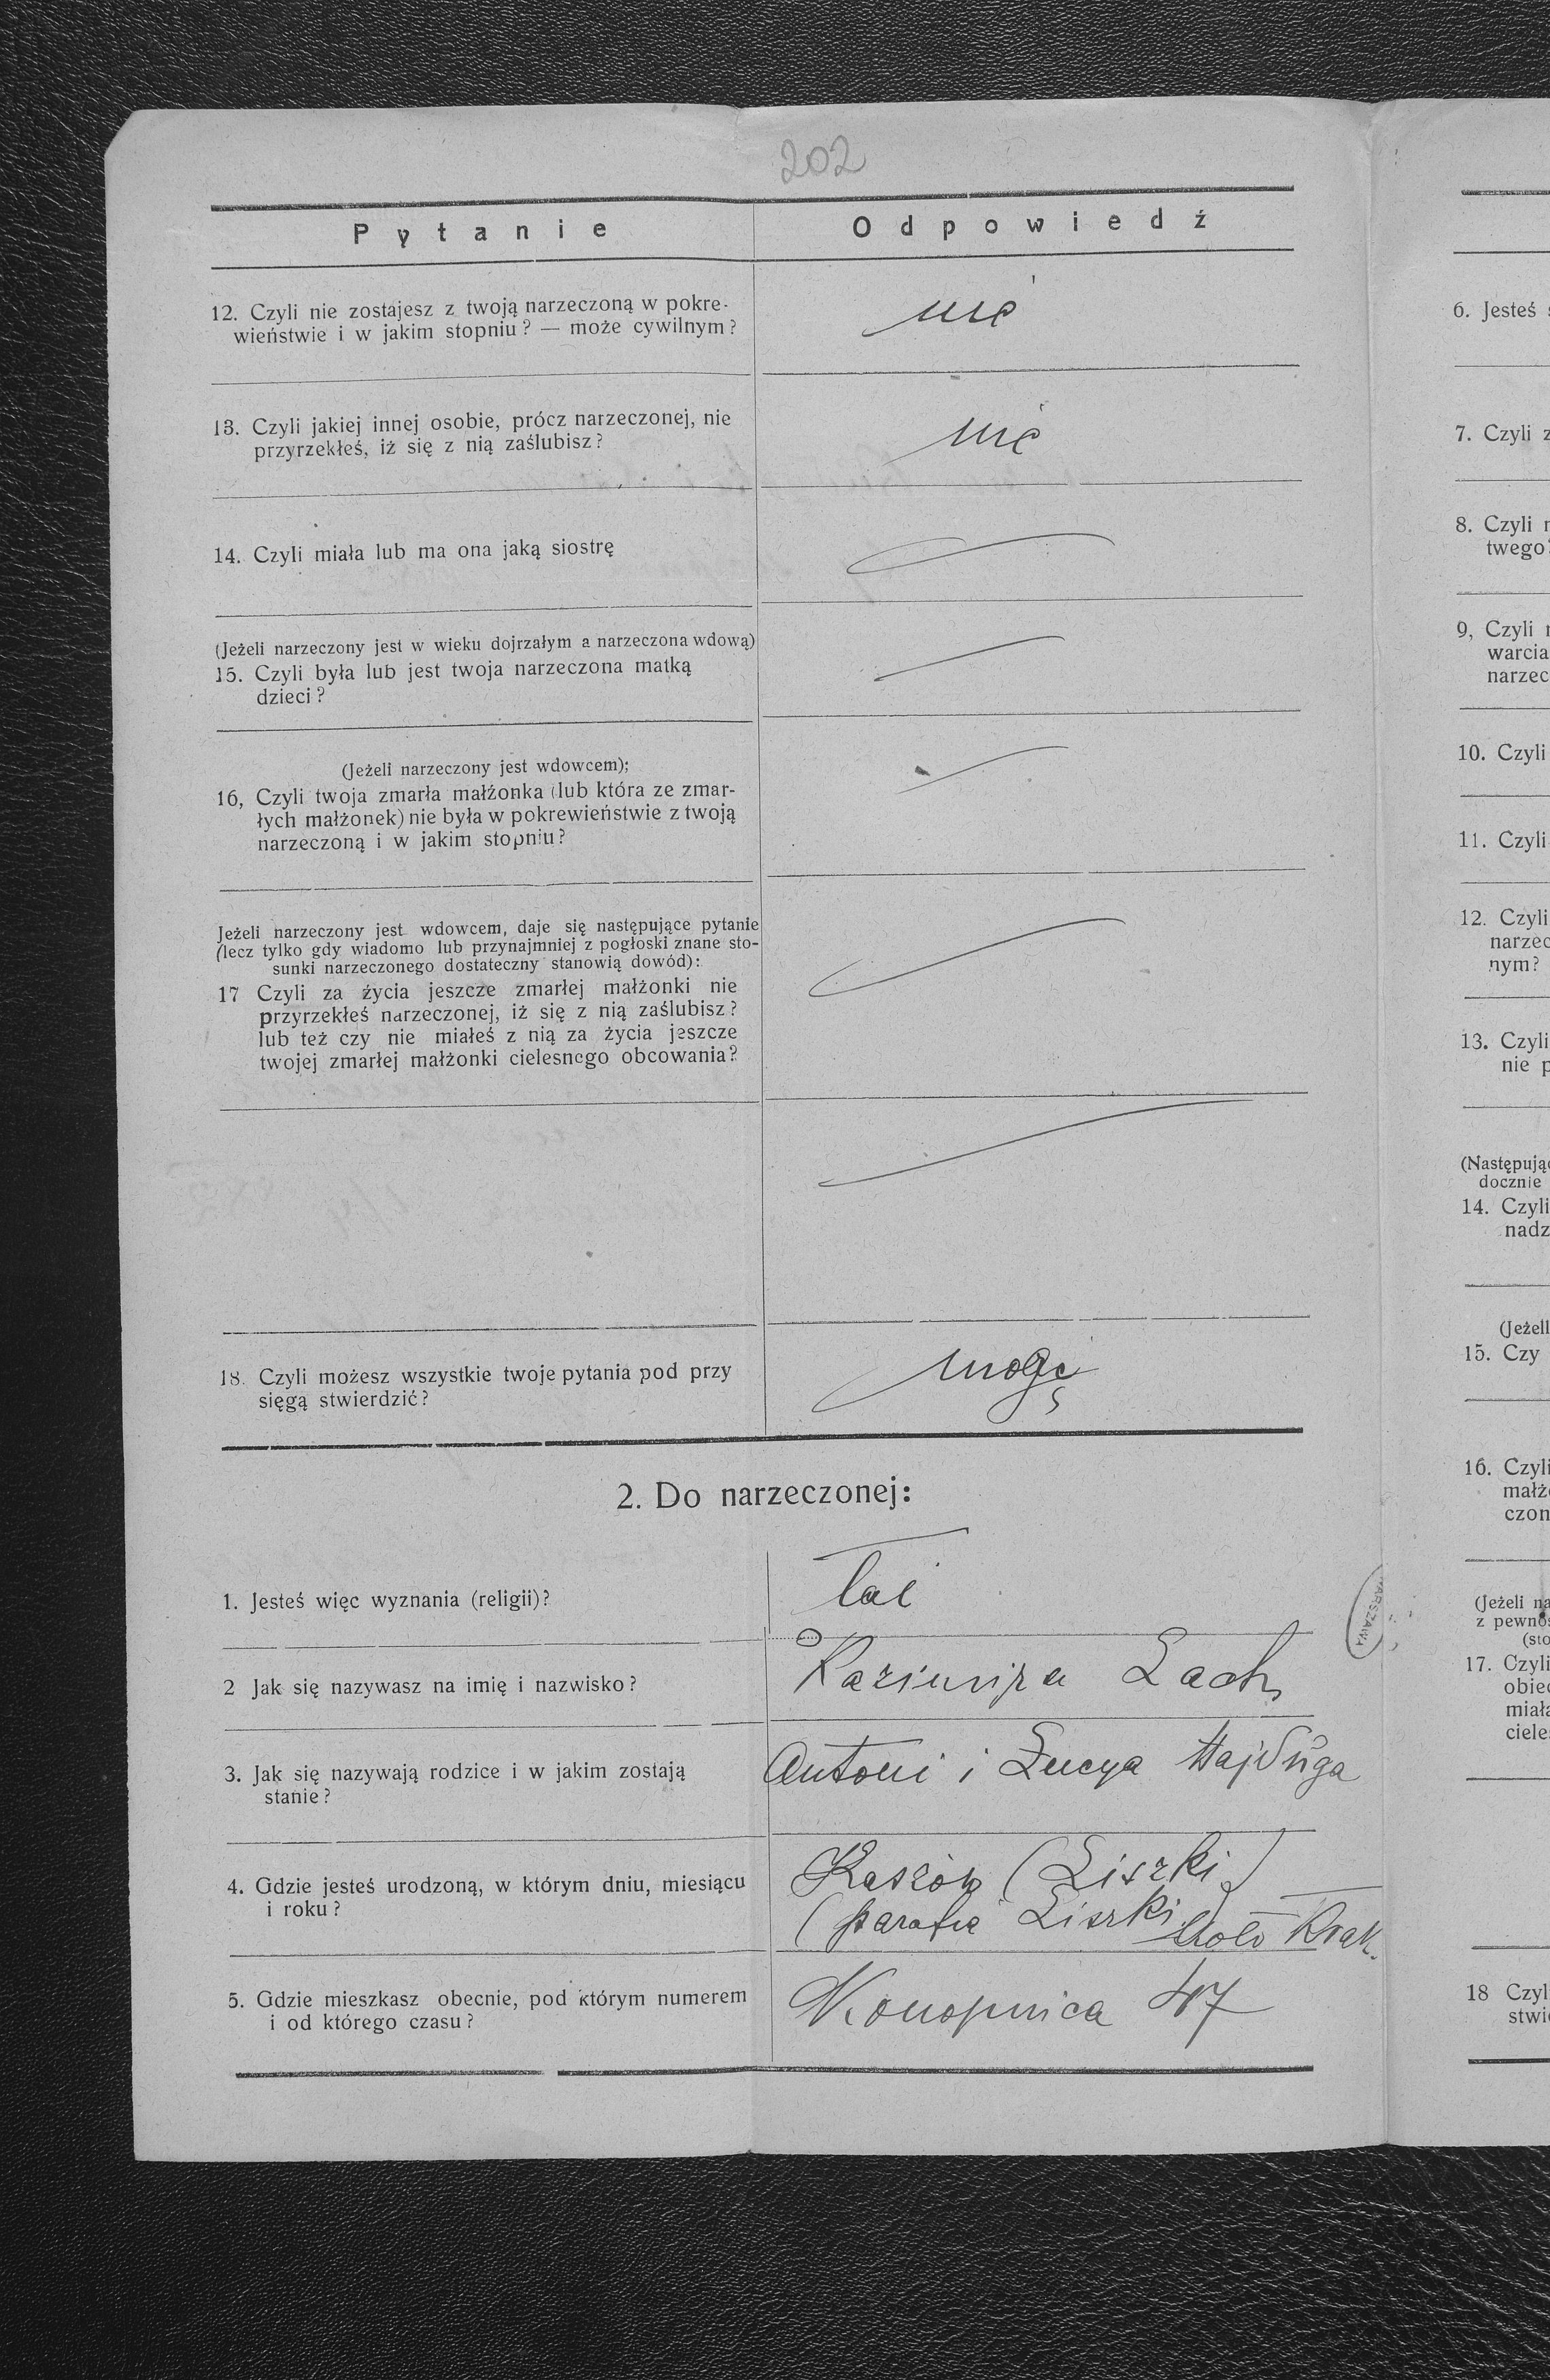 202
Pytanie Odpowiedź
12. Czyli nie zostajesz z twoją narzeczoną w pokre-
wieństwie i w jakim stopniu? — może cywilnym?
nie
13. Czyli jakiej innej osobie, prócz narzeczonej, nie
przyrzekłeś, iż się z nią zaślubisz?
nie
14. Czyli miała lub ma ona jaką siostrę
(Jeżeli narzeczony jest w wieku dojrzałym a narzeczona wdową)
15. Czyli była lub jest twoja narzeczona matką
dzieci?
(Jeżeli narzeczony jest wdowcem);
16, Czyli twoja zmarła małżonka (lub która ze zmar-
łych małżonek) nie była w pokrewieństwie z twoją
narzeczoną i w jakim stopniu?
Jeżeli narzeczony jest wdowcem, daje się następujące pytanie
(lecz tylko gdy wiadomo lub przynajmniej z pogłoski znane sto-
sunki narzeczonego dostateczny stanowią dowód):
17 Czyli za życia jeszcze zmarłej małżonki nie
przyrzekłeś narzeczonej, iż się z nią zaślubisz?
lub też czy nie miałeś z nią za życia jeszcze
twojej zmarłej małżonki cielesnego obcowania?
18. Czyli możesz wszystkie twoje pytania pod przy
sięgą stwierdzić?
mogę
2. Do narzeczonej:
1. Jesteś więc wyznania (religii)?
2 Jak się nazywasz na imię i nazwisko?
Kazimira Lach
3. Jak się nazywają rodzice i w jakim zostają
stanie?
Antoni i Łucya Hajduga
4. Gdzie jesteś urodzoną, w którym dniu, miesiącu
i roku?
Kaszów (Liszki)
(parafia Liszki) koło Krak.
5. Gdzie mieszkasz obecnie, pod którym numerem
i od którego czasu?
Konopnica 47
6. Jesteś
7. Czyli z
8. Czyli
twego
9, Czyli
warcia
narzec
10. Czyli
11. Czyli
12. Czyli
narzec
nym?
13. Czyli
nie p
(Następują
docznie
14. Czyli
nadz
(Jeżeli
15. Czy
16. Czyli
małż
czon
(Jeżeli na
z pewnoś
(sto
17. Czyli
obiec
miała
ciele
18 Czyl
stwi